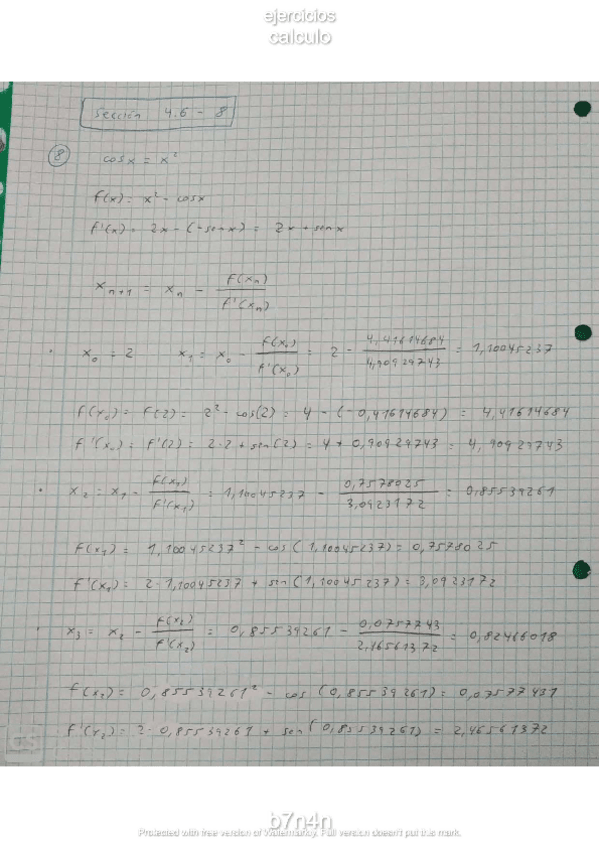 ejercicios
calculo
Sección 4.6 - 8
8 cosx = x²
f(x) = x² - cosx
f'(x) = 2x - (-senx) = 2x + senx
xₙ₊₁ = xₙ - f(xₙ)/f'(xₙ)
· x₀ = 2 x₁ = x₀ - f(x₀)/f'(x₀) = 2 - 4,41614684/4,90929743 = 1,10045237
f(x₀) = f(2) = 2² - cos(2) = 4 - (-0,41614684) = 4,41614684
f'(x₀) = f'(2) = 2·2 + sen(2) = 4 + 0,90929743 = 4,90929743
· x₂ = x₁ - f(x₁)/f'(x₁) = 1,10045237 - 0,7578025/3,0923172 = 0,85539261
f(x₁) = 1,10045237² - cos(1,10045237) = 0,7578025
f'(x₁) = 2·1,10045237 + sin(1,10045237) = 3,0923172
· x₃ = x₂ - f(x₂)/f'(x₂) = 0,85539261 - 0,0757743/2,46561372 = 0,82466018
f(x₂) = 0,85539261² - cos(0,85539261) = 0,07577431
f'(x₂) = 2·0,85539261 + sen(0,85539261) = 2,46561372
b7n4n
Protected with free version of Watermarkly. Full version doesn't put this mark.